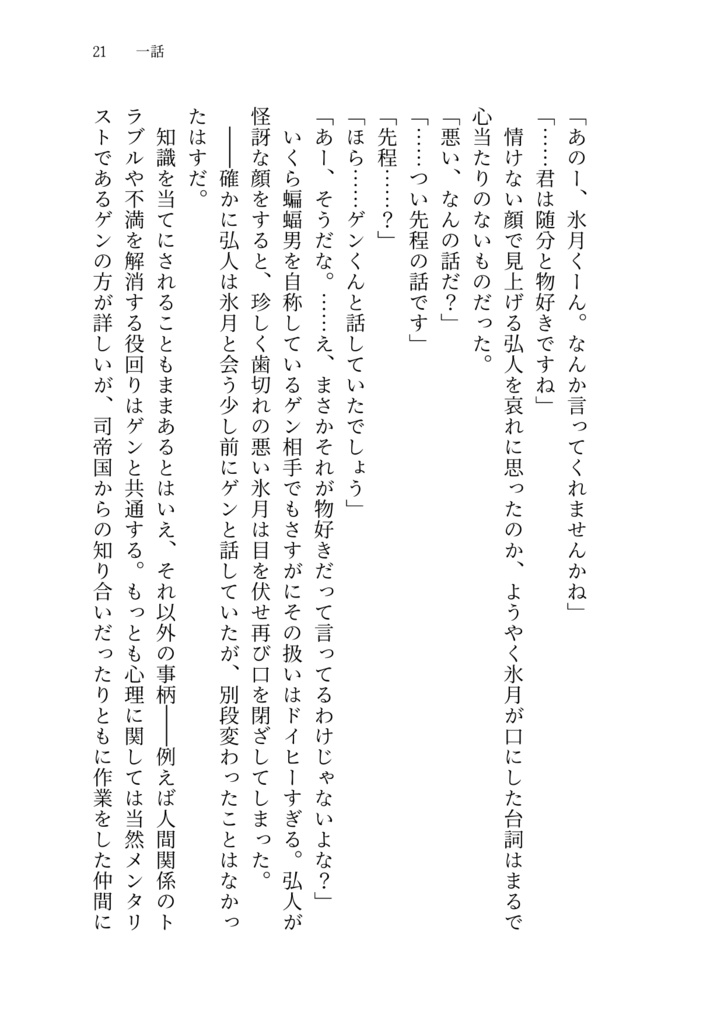 21　一話
「あのー、氷月くーん。なんか言ってくれませんかね」
「……君は随分と物好きですね」
　情けない顔で見上げる弘人を哀れに思ったのか、ようやく氷月が口にした台詞はまるで
心当たりのないものだった。
「悪い、なんの話だ？」
「……つい先程の話です」
「先程……？」
「ほら……ゲンくんと話していたでしょう」
「あー、そうだな。……え、まさかそれが物好きだって言ってるわけじゃないよな？」
　いくら蝙蝠男を自称しているゲン相手でもさすがにその扱いはドイヒーすぎる。弘人が
怪訝な顔をすると、珍しく歯切れの悪い氷月は目を伏せ再び口を閉ざしてしまった。
　――確かに弘人は氷月と会う少し前にゲンと話していたが、別段変わったことはなかっ
たはずだ。
　知識を当てにされることもままあるとはいえ、それ以外の事柄――例えば人間関係のト
ラブルや不満を解消する役回りはゲンと共通する。もっとも心理に関しては当然メンタリ
ストであるゲンの方が詳しいが、司帝国からの知り合いだったりともに作業をした仲間に